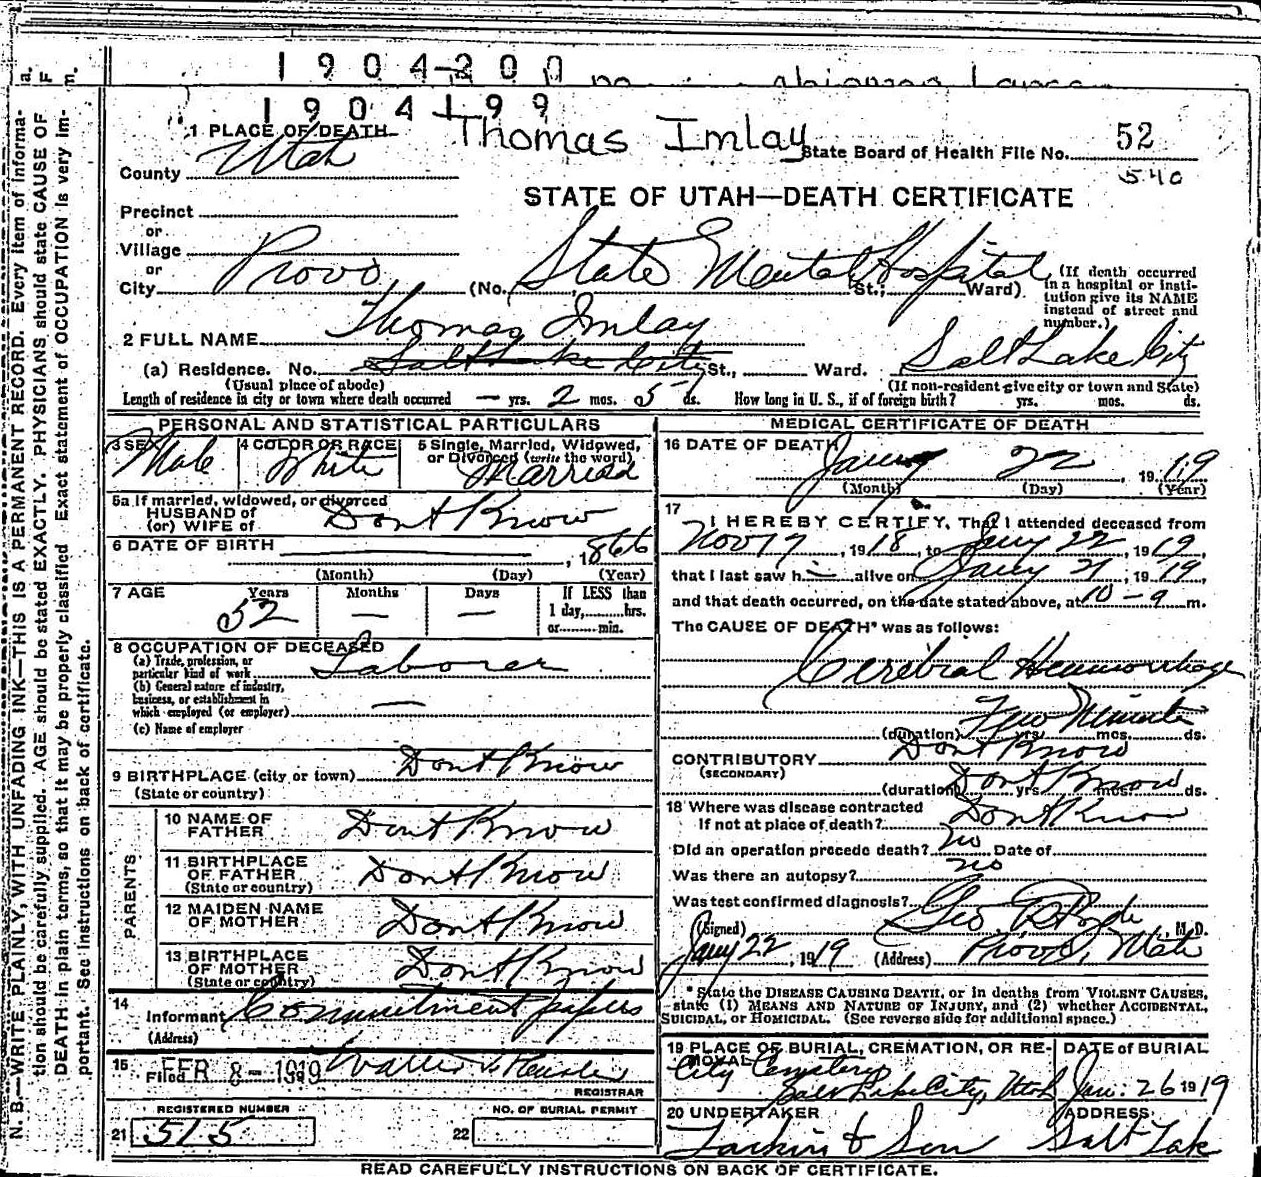 1904200 no
1904199
Thomas Imlay
State Board of Health File No. 52
540
1 PLACE OF DEATH
County Utah
STATE OF UTAH—DEATH CERTIFICATE
Precinct
or
Village
or
City Provo (No. State Mental Hospital St.; Ward)
(If death occurred in a hospital or institution give its NAME instead of street and number.)
2 FULL NAME Thomas Imlay
(a) Residence. No. Salt Lake City St., Ward. Salt Lake City
(Usual place of abode) (If non-resident give city or town and State)
Length of residence in city or town where death occurred — yrs. 2 mos. 5 ds. How long in U. S., if of foreign birth? yrs. mos. ds.
PERSONAL AND STATISTICAL PARTICULARS
3 SEX Male
4 COLOR OR RACE White
5 Single, Married, Widowed, or Divorced (write the word) Married
5a If married, widowed, or divorced
HUSBAND of
(or) WIFE of Dont Know
6 DATE OF BIRTH , 1866
(Month) (Day) (Year)
7 AGE Years Months Days If LESS than
52 — — 1 day, hrs.
or min.
8 OCCUPATION OF DECEASED
(a) Trade, profession, or
particular kind of work Laborer
(b) General nature of industry,
business, or establishment in
which employed (or employer) —
(c) Name of employer
9 BIRTHPLACE (city or town) Dont Know
(State or country)
PARENTS
10 NAME OF
FATHER Dont Know
11 BIRTHPLACE
OF FATHER Dont Know
(State or country)
12 MAIDEN NAME
OF MOTHER Dont Know
13 BIRTHPLACE
OF MOTHER Dont Know
(State or country)
14
Informant Commitment papers
(Address)
15
Filed FEB 8 - 1919 REGISTRAR
REGISTERED NUMBER NO. OF BURIAL PERMIT
21 515 22
MEDICAL CERTIFICATE OF DEATH
16 DATE OF DEATH Jany 22 1919
(Month) (Day) (Year)
17
I HEREBY CERTIFY, That I attended deceased from
Nov 17, 1918, to Jany 22, 1919,
that I last saw h alive on Jany 21, 1919,
and that death occurred, on the date stated above, at 10-9 m.
The CAUSE OF DEATH* was as follows:
Cerebral Hemorrhage
Few Minutes
(duration) yrs. mos. ds.
CONTRIBUTORY Dont Know
(SECONDARY)
(duration) Dont Know yrs. mos. ds.
18 Where was disease contracted
If not at place of death? Dont Know
Did an operation precede death? no Date of
Was there an autopsy? no
Was test confirmed diagnosis?
(Signed) Geo , M. D.
Jany 22, 1919 (Address) Provo, Utah
* State the DISEASE CAUSING DEATH, or in deaths from VIOLENT CAUSES,
state (1) MEANS AND NATURE OF INJURY, and (2) whether ACCIDENTAL,
SUICIDAL, or HOMICIDAL. (See reverse side for additional space.)
19 PLACE OF BURIAL, CREMATION, OR REMOVAL DATE of BURIAL
City Cemetery
Salt Lake City, Utah Jan. 26 1919
20 UNDERTAKER ADDRESS
Larkin & Son Salt Lake
READ CAREFULLY INSTRUCTIONS ON BACK OF CERTIFICATE.
N. B.—WRITE PLAINLY, WITH UNFADING INK—THIS IS A PERMANENT RECORD. Every item of information should be carefully supplied. AGE should be stated EXACTLY. PHYSICIANS should state CAUSE OF DEATH in plain terms, so that it may be properly classified. Exact statement of OCCUPATION is very important. See instructions on back of certificate.